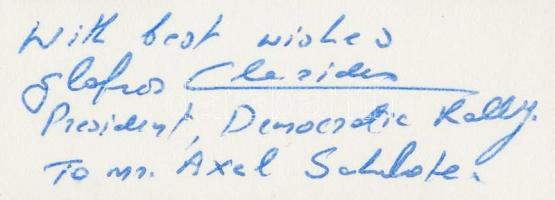 With best wishes
Glafcos Clerides
President, Democratic Rally.
To Mr. Axel